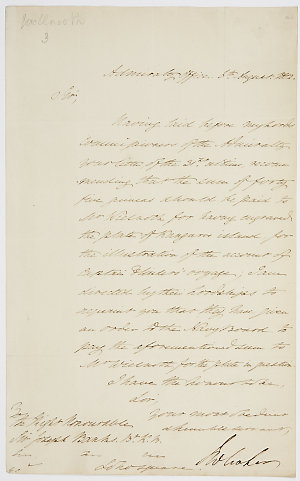 3
Admiralty Office 8th August 1812.
Sir,
Having laid before my Lords
Commissioners of the Admiralty
your letter of the 31st ultimo, recom
mending, that the sum of forty
five pounds should be paid to
Mr for having engraved
the plate of Kangaroo island for
the illustration of the account of
Captain Flinders's voyage; I am
directed by their Lordships to
acquaint you that they have given
an order to the Navy Board to
pay the aforementioned sum to
Mr for the plate in question
I have the honour to be,
Sir,
your most obedient
humble servant,
The Right Honourable
Sir Joseph Banks, Bt. K.B.
Soho square